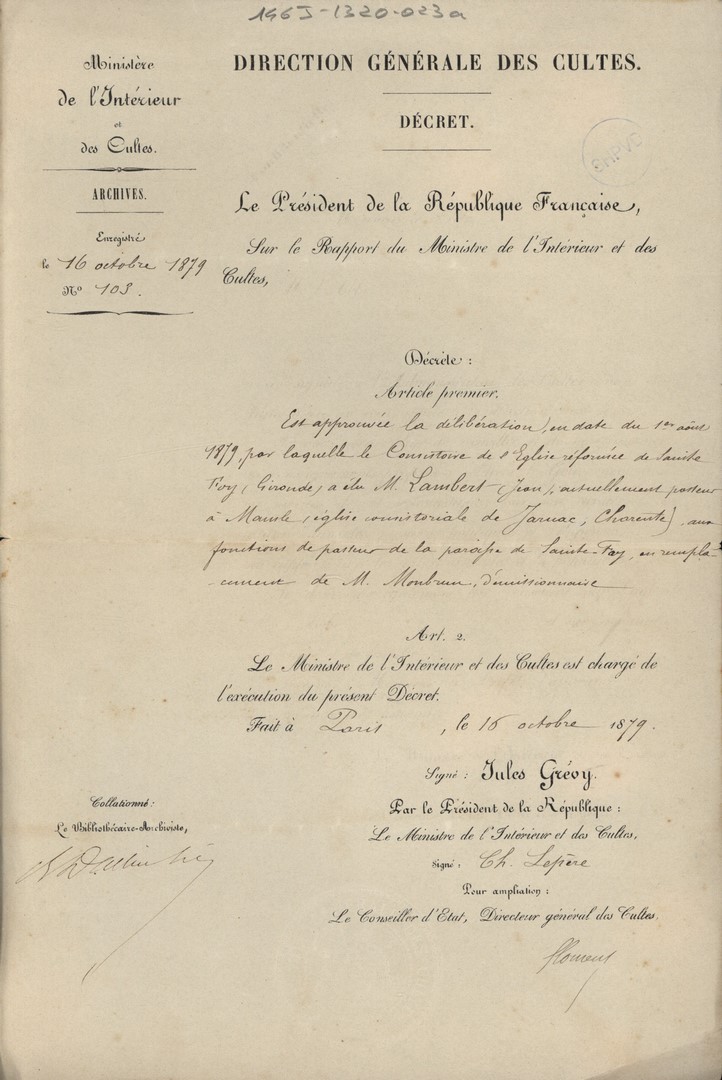 146J-1320-023a
Ministère
de l'Intérieur
et
des Cultes.
ARCHIVES.
Enregistré
le 16 octobre 1879
No 103.
DIRECTION GÉNÉRALE DES CULTES.
DÉCRET.
SHPVD
Le Président de la République Française,
Sur le Rapport du Ministre de l'Intérieur et des
Cultes,
Décrète :
Article premier.
Est approuvée la délibération, en date du 1er août
1879, par laquelle le Consistoire de l'Eglise réformée de Sainte
Foy, (Gironde) a élu M. Lambert (Jean), actuellement pasteur
à Mansle (église consistoriale de Jarnac, Charente), aux
fonctions de pasteur de la paroisse de Sainte-Foy, en rempla-
-cement de M. Monbrun, démissionnaire
Art. 2.
Le Ministre de l'Intérieur et des Cultes est chargé de
l'exécution du présent Décret.
Fait à Paris, le 16 octobre 1879.
Signé : Jules Grévy.
Par le Président de la République :
Le Ministre de l'Intérieur et des Cultes,
Signé : Ch. Lepère
Pour ampliation :
Le Conseiller d'Etat, Directeur général des Cultes.
Flourens
Collationné :
Le Bibliothécaire-Archiviste,